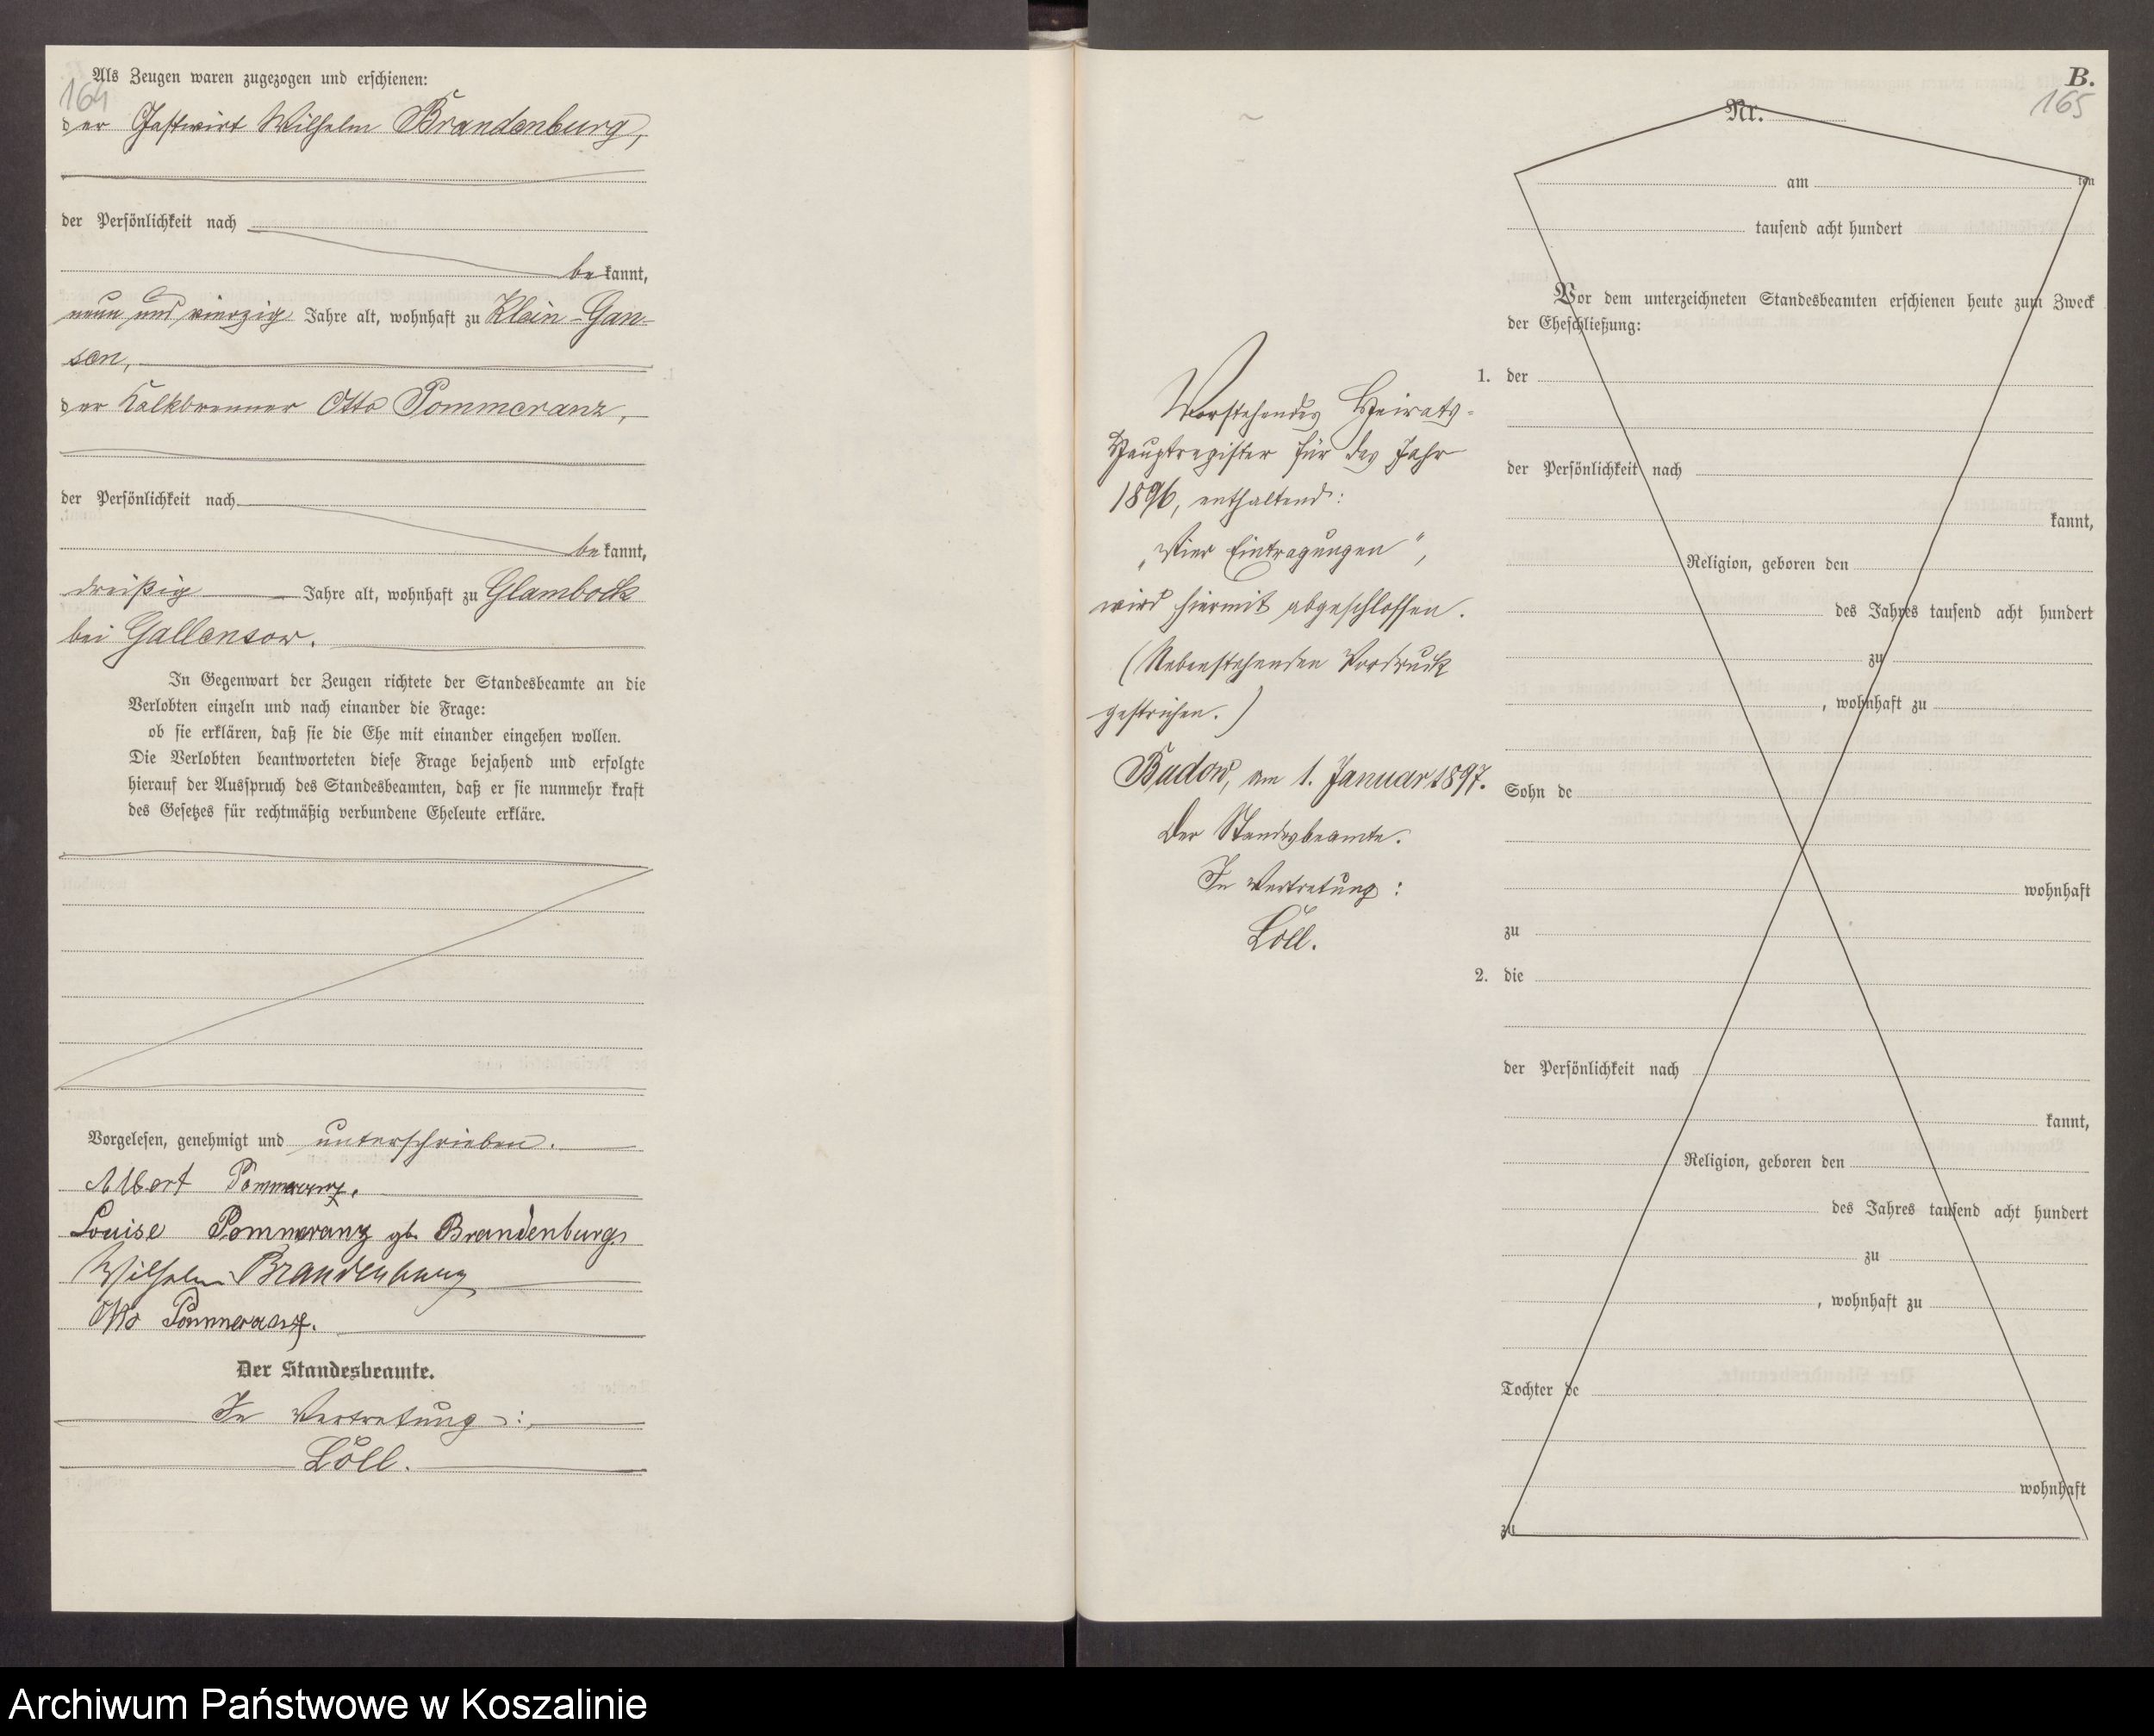 Als Zeugen waren zugezogen und erschienen:
164
der Gastwirt Wilhelm Brandenburg,
der Persönlichkeit nach
be kannt,
neun und vierzig Jahre alt, wohnhaft zu Klein-Gan-
sen,
der Kalkbrenner Otto Pommeranz,
der Persönlichkeit nach
be kannt,
dreißig Jahre alt, wohnhaft zu Glambock
bei Gallensow.
In Gegenwart der Zeugen richtete der Standesbeamte an die
Verlobten einzeln und nach einander die Frage:
ob sie erklären, daß sie die Ehe mit einander eingehen wollen.
Die Verlobten beantworteten diese Frage bejahend und erfolgte
hierauf der Ausspruch des Standesbeamten, daß er sie nunmehr kraft
des Gesetzes für rechtmäßig verbundene Eheleute erkläre.
Vorgelesen, genehmigt und unterschrieben.
Albert Pommeranz.
Louise Pommeranz gb. Brandenburg
Wilhelm Brandenburg
Otto Pommeranz.
Der Standesbeamte.
In Vertretung:
Löll.
Vorstehendes Heirats-
Hauptregister für das Jahr
1896, enthaltend:
„Vier Eintragungen",
wird hiermit abgeschlossen.
(Nebenstehenden Vordruck
gestrichen.)
Budow, am 1. Januar 1897.
Der Standesbeamte.
In Vertretung:
Löll.
B.
165
Nr.
am ten
tausend acht hundert
Vor dem unterzeichneten Standesbeamten erschienen heute zum Zweck
der Eheschließung:
1. der
der Persönlichkeit nach
kannt,
Religion, geboren den
des Jahres tausend acht hundert
zu
, wohnhaft zu
Sohn de
wohnhaft
zu
2. die
der Persönlichkeit nach
kannt,
Religion, geboren den
des Jahres tausend acht hundert
zu
, wohnhaft zu
Tochter de
wohnhaft
zu
Archiwum Państwowe w Koszalinie